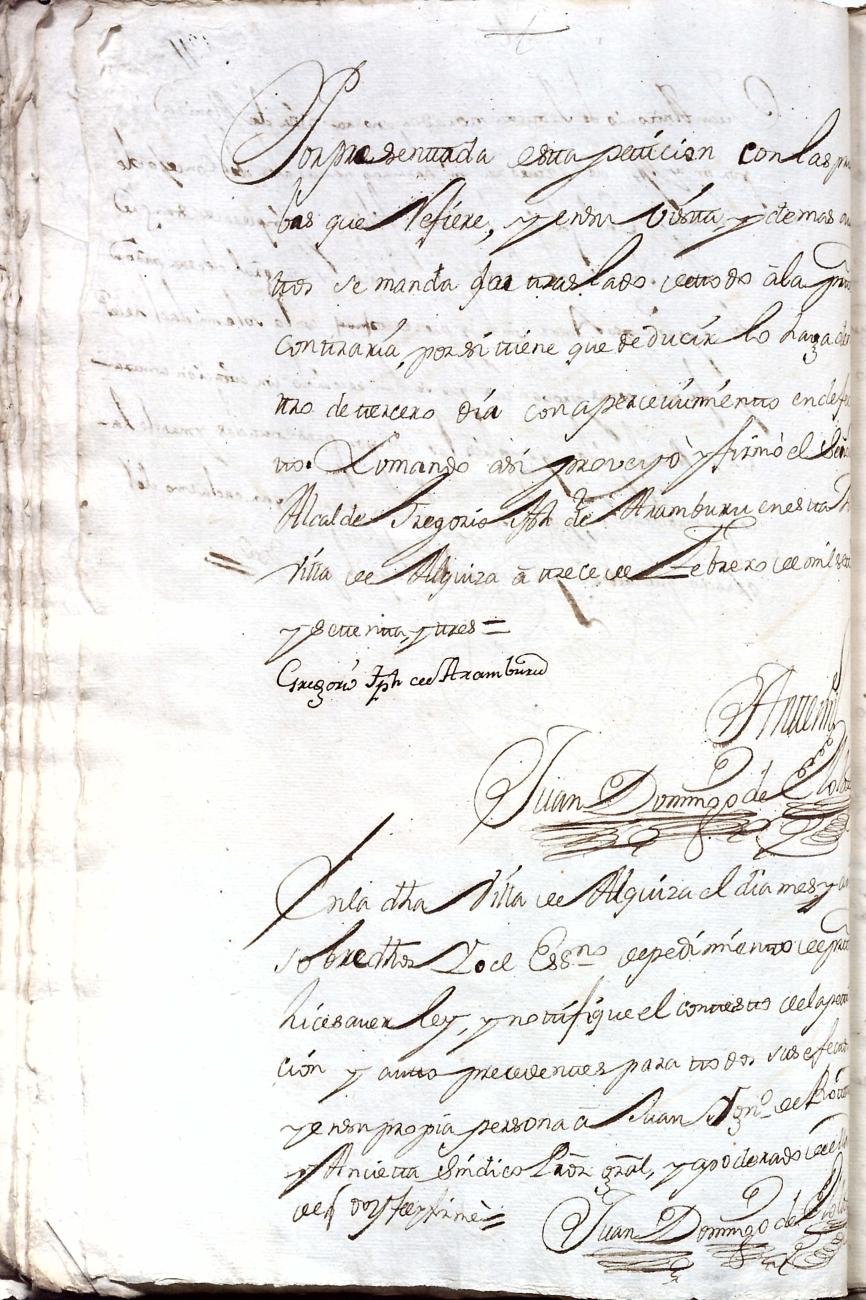 Por presenttada estta petticion con las
bas que Refiere, y en su Vistta, y demas
ttos se manda dar traslado de ttodo â la
conttraria, por si ttiene que deducir lo haga
ttro de ttercero dia con apercevimientto en
tto. Lo mando asi proveyò y firmó el Señ
Alcalde Gregorio Jph de Aramburu en estta
Villa de Alquiza â ttrece de Febrero de mil
y settentta, y ttres =
Gregorio Jph de Aramburu
Antemi
Juan Domingo de
En la dha Villa de Alquiza el dia mes y
sobredhos Yo el Essno de pedimientto de
hice saver ley, y nottifique el conttestto de la petti
ción y autto precedenttes para ttodos sus efecttos
y en su propia persona â Juan
y Ancietta Sindico Pror gral, y apoderado
de doy fee y firmè =
Juan Domingo de